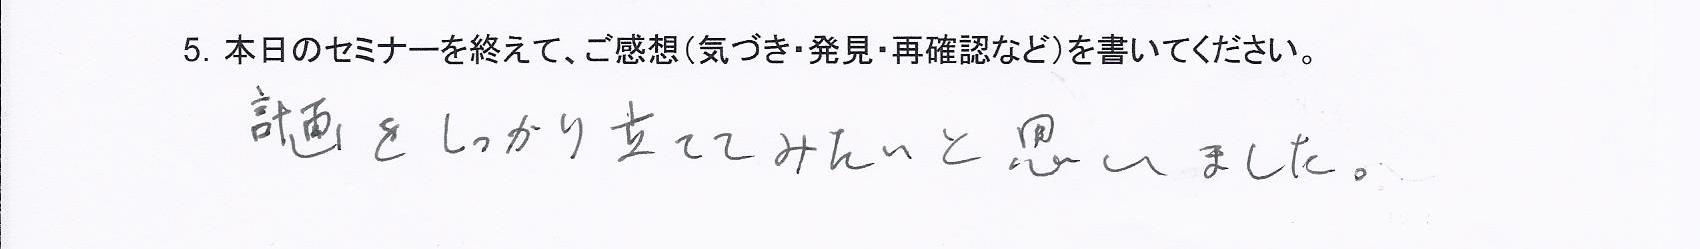 5. 本日のセミナーを終えて、ご感想(気づき・発見・再確認など)を書いてください。
計画をしっかり立ててみたいと思いました。